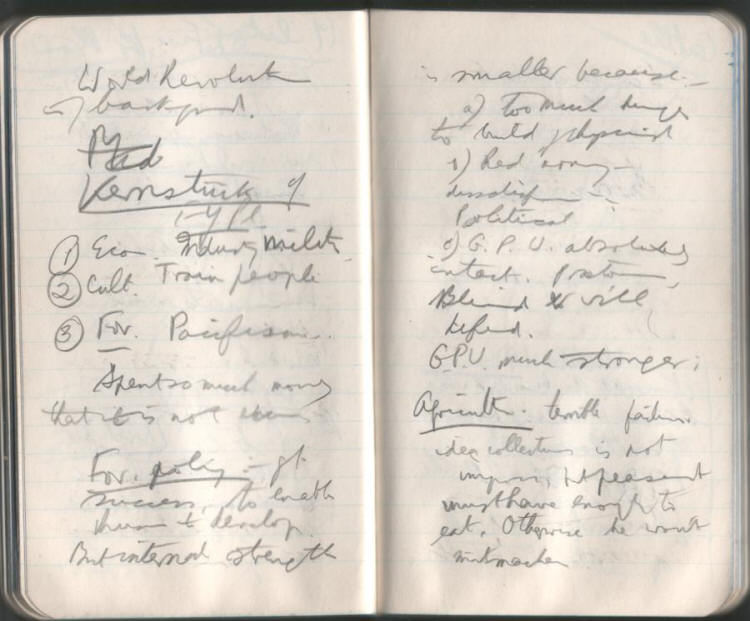 World Revolution
in background.
Kernstück of
FYPL
① Eco Industry
② Cult. Train people
③ For. Pacifism.
Spent so much money
that it is not
For. policy - gt.
success, to enable
them to develop.
But internal strength
is smaller because -
a) too much hunger
to build physical
b) Red army -
Political
c) G.P.U. absolutely
intact.
Blind will
defend.
G.P.U. much stronger;
Agricult. terrible failure.
idea collectives is not
but peasant
must have enough to
eat. Otherwise he won't
mitmachen